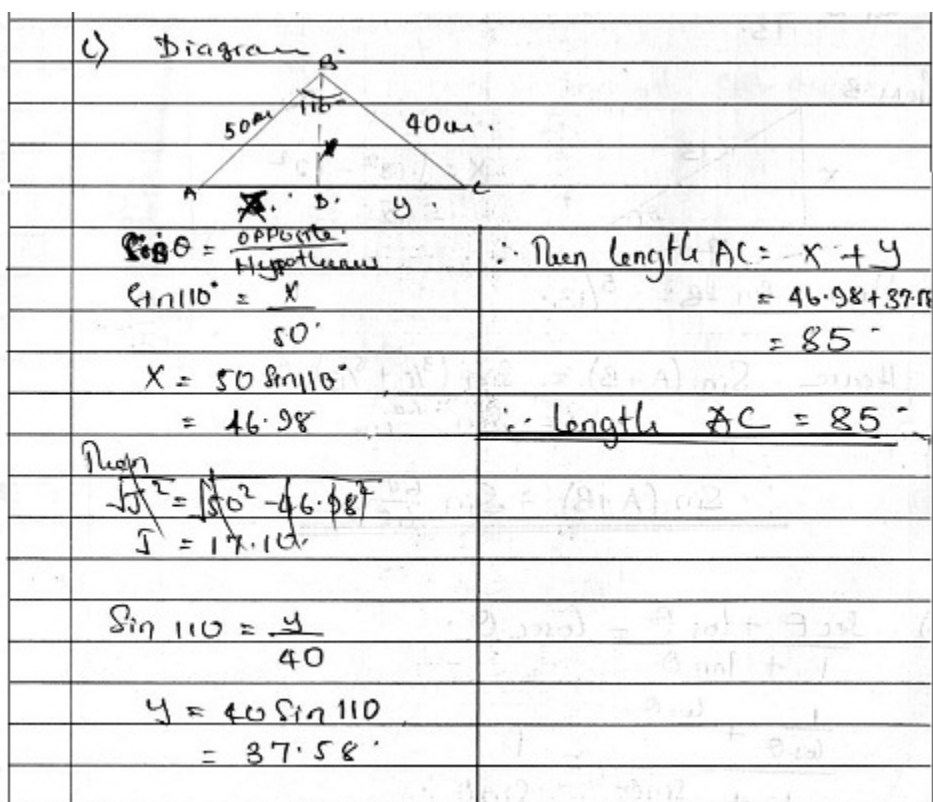 c) Diagram.
B
110
50cm
40cm.
A
D.
y.
C
Sinθ = opposite
Hypothenus
Sin110° = x
50
X = 50 Sin110°
= 46.98
Then
√J² = √50² - 46.98²
J = 17.10
Sin 110 = y
40
y = 40 Sin 110
= 37.58
∴ Then length AC = x + y
= 46.98 + 37.58
= 85
∴ Length AC = 85